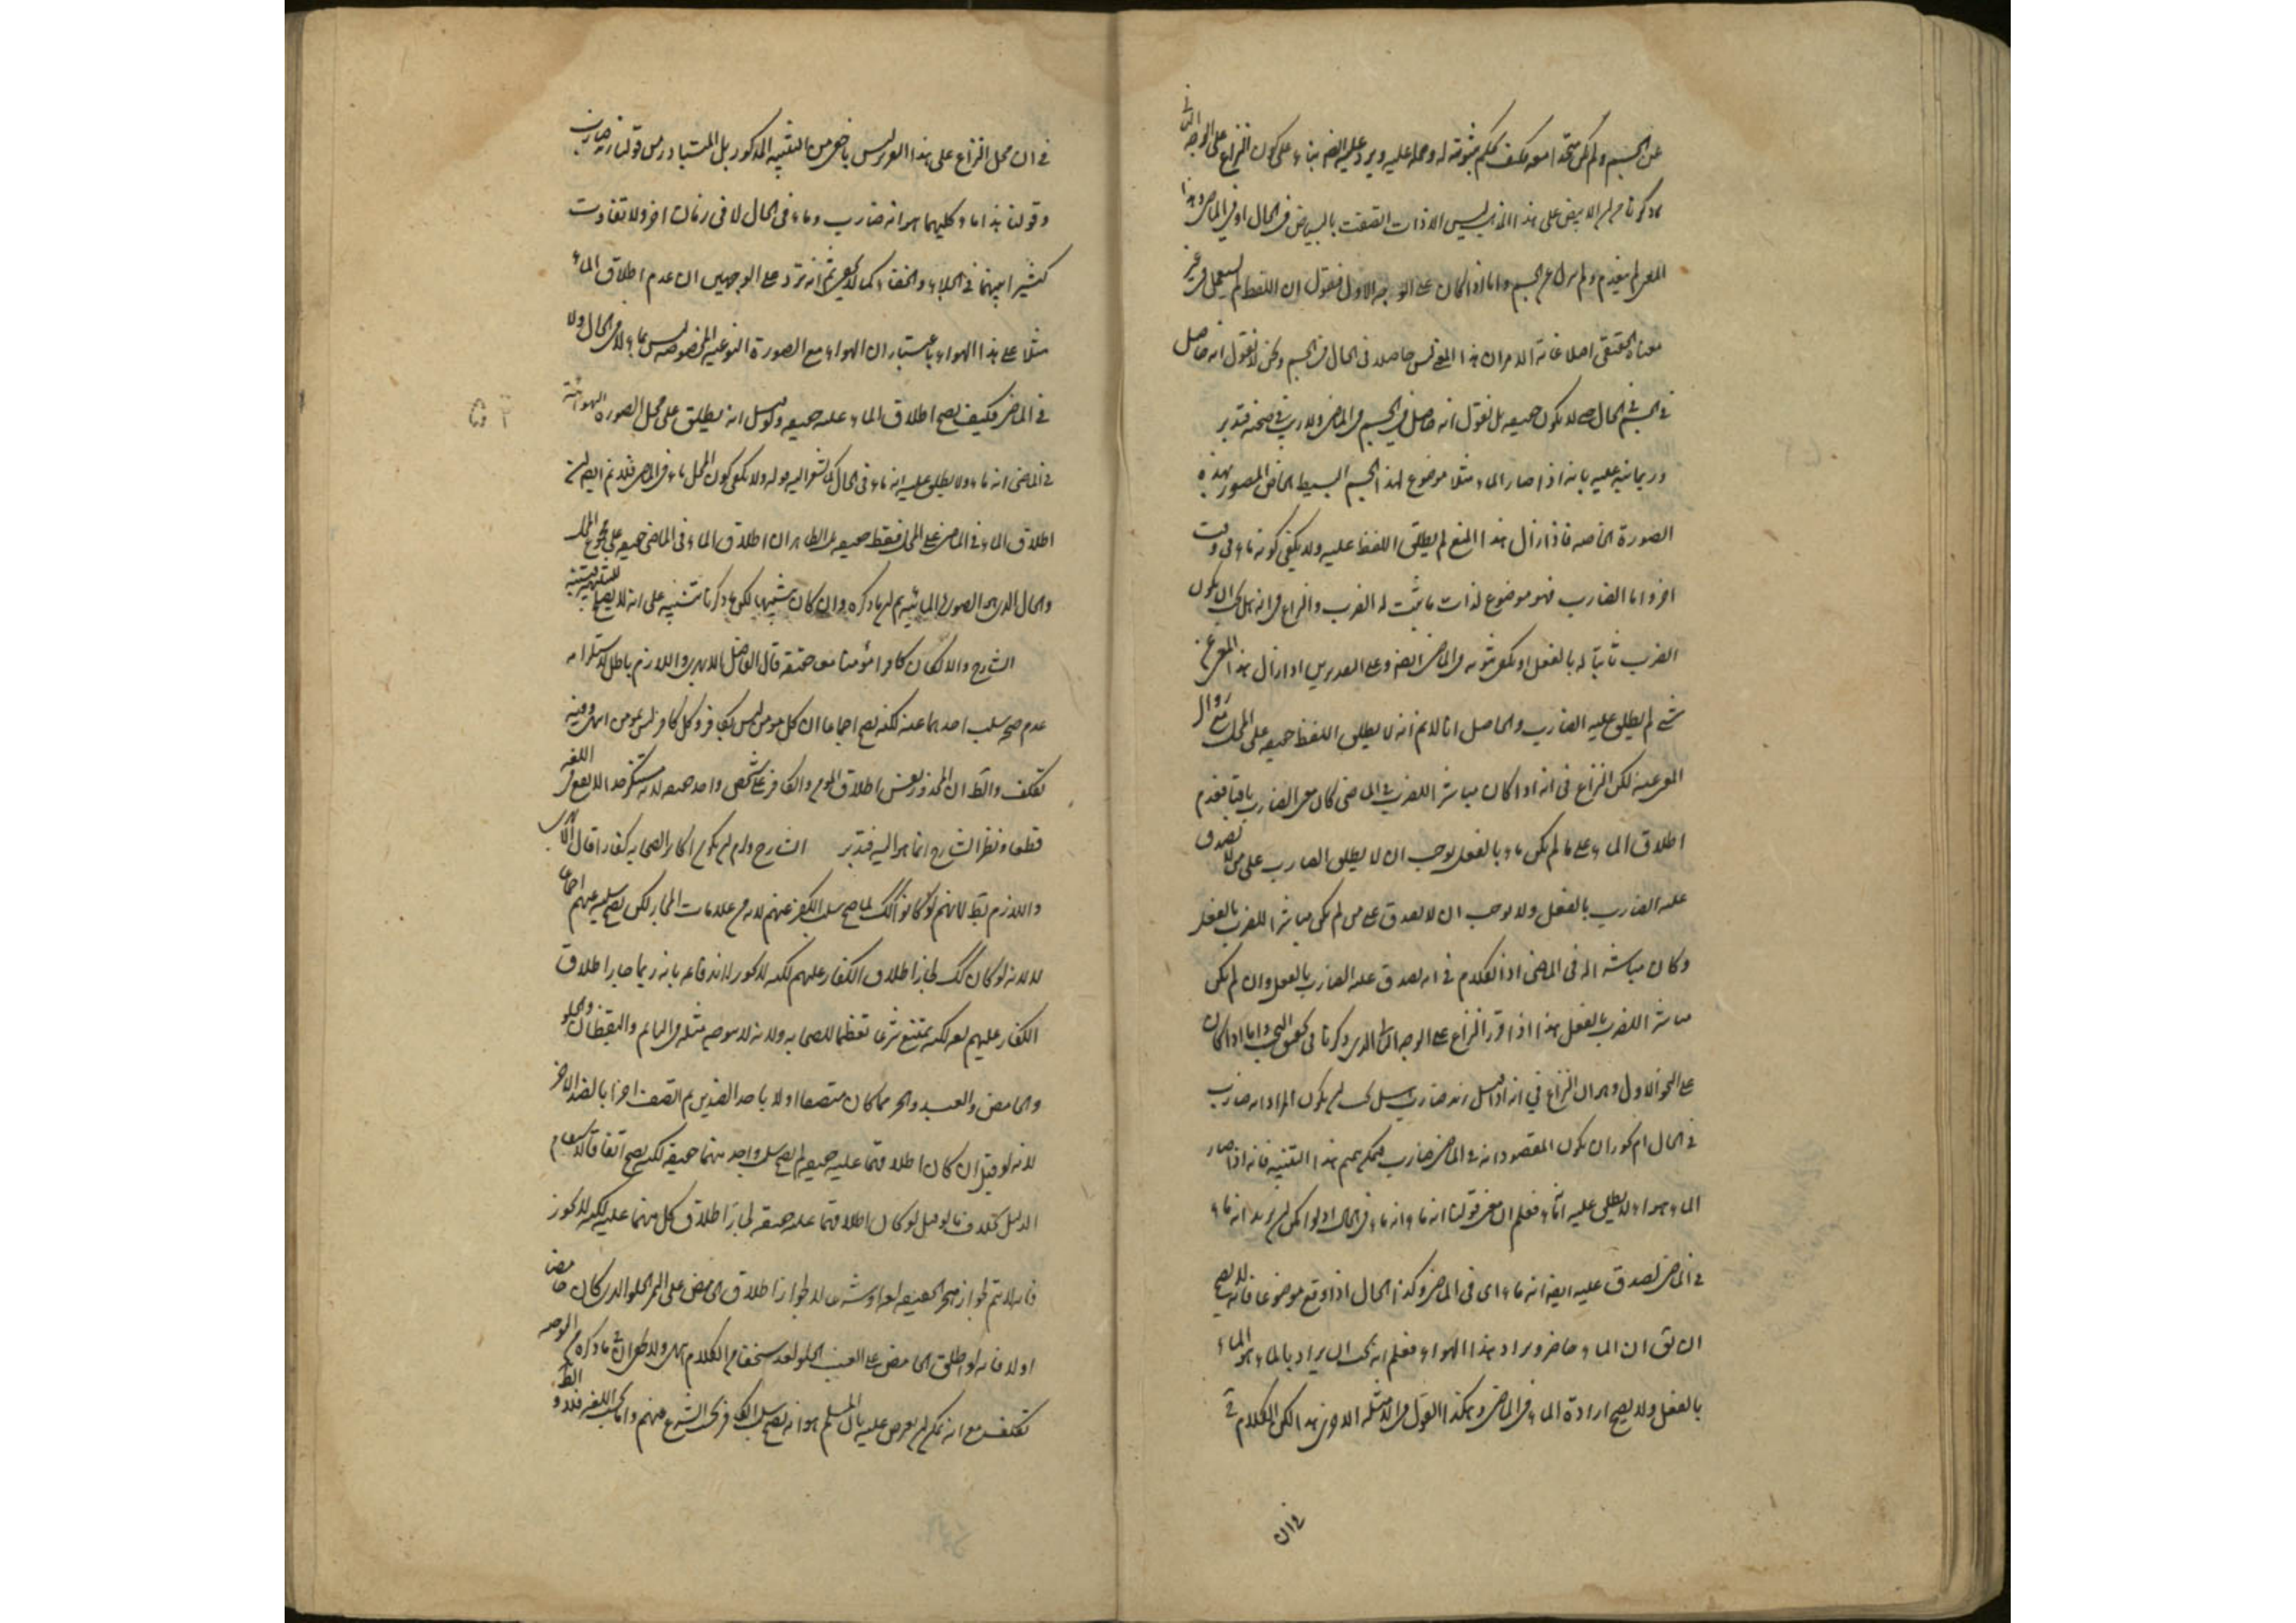 عن الجسم ولم يكن متحدا معه فكيف يحكم بثبوته له وحمله عليه ويرد عليه ايضا بناء على كون النزاع على الوجه الثاني
الابيض على هذا المذهب ليس الا ذات اتصفت بالبياض في الحال او في الماضي وهذا
المعنى لم ينعدم ولم يزل عن الجسم واما اذا كان على الوجه الاول فنقول ان اللفظ لم يستعمل في غير
معناه الحقيقي اصلا غاية الامر ان هذا المعنى ليس حاصلا في الحال في الجسم ونحن لا نقول انه حاصل
في الجسم في الحال حتى لا يكون حقيقة بل نقول انه حاصل في الجسم في الماضي ولا ريب في صحته فتدبر
وربما ينبه عليه بانه اذا صار الماء مثلا موضوع لهذا الجسم البسيط الخاص المصور بهذه
الصورة الخاصة فاذا زال هذا المنع لم يطلق اللفظ عليه ولا يكفي كونه ماء في وقت
اخر واما الضارب فهو موضوع لذات ما ثبت له الضرب والنزاع في انه هل يجب ان يكون
الضرب ثابتا له بالفعل او يكفي ثبوته في الماضي ايضا وعلى التقديرين اذا زال هذا المعنى عن
شيء لم يطلق عليه الضارب والحاصل انا لا نم انه لا يطلق اللفظ حقيقة على المحل مع زوال
المعنى عنه لكن النزاع في انه اذا كان مباشرا للضرب في الماضي كان معنى الضارب باقيا فعدم
اطلاق الماء على ما لم يكن ماء بالفعل يوجب ان لا يطلق الضارب على من لا يصدق
عليه الضارب بالفعل ولا يوجب ان لا يصدق على من لم يكن مباشرا للضرب بالفعل
وكان مباشرا له في الماضي اذ الكلام في انه يصدق عليه الضارب بالفعل وان لم يكن
مباشرا للضرب بالفعل هذا اذا قرر النزاع على الوجه الثاني الذي ذكرنا في تحقيق البحث واما اذا كان
على النحو الاول وهو ان النزاع في انه اذا قيل زيد ضارب هل يجب ان يكون المراد انه ضارب
في الحال ام يجوز ان يكون المقصود انه في الماضي ضارب فيمكن تتميم هذا التنبيه فانه اذا صار
الماء هواء لا يطلق عليه الماء فعلم ان معنى قولنا انه ماء انه ماء في الحال اذ لو امكن ان يريد انه ماء
في الماضي لصدق عليه ايضا انه ماء اي في الماضي وكذا الحال اذا وقع موضوعا فانه لا يصح
ان يق ان الماء حاضر ويراد هذا الهواء فعلم انه يجب ان يراد بالماء هو الماء
بالفعل ولا يصح ارادة الماء في الماضي وهكذا القول في الامثلة الاخرى هذا لكن الكلام في
في ان
في ان محل النزاع على هذا التقرير ليس باخفى من التنبيه المذكور بل المتبادر من قولنا زيد ضارب
وقولنا هذا ماء كليهما هو انه ضارب وماء في الحال لا في زمان اخر ولا تفاوت
كثيرا بينهما في الجلاء والخفاء كما لا يخفى ثم انه يرد على الوجهين ان عدم اطلاق الماء
مثلا على هذا الهواء باعتبار ان الهواء مع الصورة النوعية المخصوصة ليس بماء لا في الحال ولا
في الماضي فكيف يصح اطلاق الماء عليه حقيقة ولو قيل انه يطلق على محل الصورة الهوائية
في الماضي انه ماء ولا يطلق عليه انه ماء في الحال كما تشعر اليه قوله ولا يكفي كون المحل ماء في الماضي فلا نم ايضا ان
اطلاق الماء في الماضي على المحل فقط حقيقة بل الظاهر ان اطلاق الماء في الماضي حقيقة على مجموع المحل
والحال الذي هو الصورة المائية ثم ان ما ذكره وان كان تنبيها لكن ما ذكرنا تنبيه على انه لا يصح للتنبيه
الشارح والا لكان كافرا مؤمنا معا حقيقة قال الفاضل الابهري واللازم باطل لاستلزامه
عدم صحة سلب احدهما عنه لكنه يصح اجماعا ان كل مؤمن ليس بكافر وكل كافر ليس بمؤمن انتهى وفيه
تكلف والظ ان المحذور نفس اطلاق المؤمن والكافر على شخص واحد حقيقة لانه مستنكر جدا لا يقع في اللغة
قطعا ونظر الشارح انما هو اليه فتدبر الشارح ولزم ان يكون اكابر الصحابة كفارا قال الابهري
واللازم بط لانهم لو كانوا كك لما صح سلب الكفر عنهم لانه من علامات المجاز لكن يصح سلبه عنهم اجماعا
لا لانه لو كان كك لجاز اطلاق الكفار عليهم لكنه لا يجوز لاندفاعه بانه ربما جاز اطلاق
الكفار عليهم لغة لكنه يمتنع شرعا تعظيما للصحابة ولانه لا يتوجه مثله في النائم واليقظان والحلو
والحامض والعبد والحر مما كان متصفا اولا باحد الضدين ثم اتصف اخرا بالضد الاخر
لانه لو قيل ان كان اطلاقهما عليه حقيقة لم يصح سلب واحد منهما حقيقة لكنه يصح اتفاقا لاستقام
الدليل بخلاف ما لو قيل لو كان اطلاقهما عليه حقيقة لجاز اطلاق كل منهما عليه لكنه لا يجوز
فانه لا يتم لجواز هجر الحقيقة لغة او شرعا لا لجواز اطلاق الحامض على التمر الحلو الذي كان حامضا
اولا فانه لو اطلق الحامض على العنب الحلو لعد سخفا من الكلام انتهى ولا يظهر ان ما ذكره من الوجه
تكلف مع انه يمكن ان يعرض عليه بان المسلم هو انه يصح سلب الكافر بحسب الشرع عنهم واما بحسب اللغة فلا و الظ